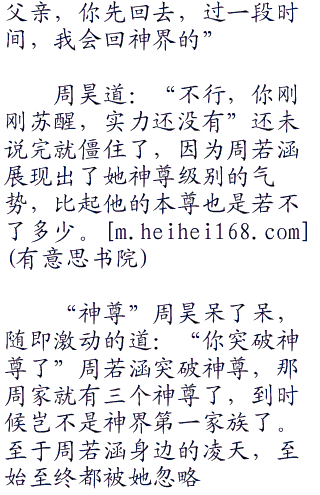 父亲，你先回去，过一段时
间，我会回神界的”
周昊道：“不行，你刚
刚苏醒，实力还没有”还未
说完就僵住了，因为周若涵
展现出了她神尊级别的气
势，比起他的本尊也是若不
了多少。[m.heihei168.com]
(有意思书院)
“神尊”周昊呆了呆，
随即激动的道：“你突破神
尊了”周若涵突破神尊，那
周家就有三个神尊了，到时
候岂不是神界第一家族了。
至于周若涵身边的凌天，至
始至终都被她忽略